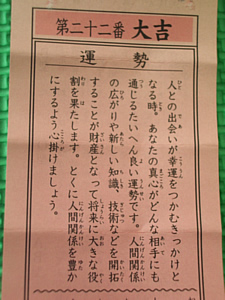 第二十二番 大吉
運勢
人との出会いが幸運をつかむきっかけと
なる時。あなたの真心がどんな相手にも
通じるたいへん良い運勢です。人間関係
の広がりや新しい知識、技術などを開拓
することが財産となって将来に大きな役
割を果たします。とくに人間関係を豊か
にするよう心掛けましょう。